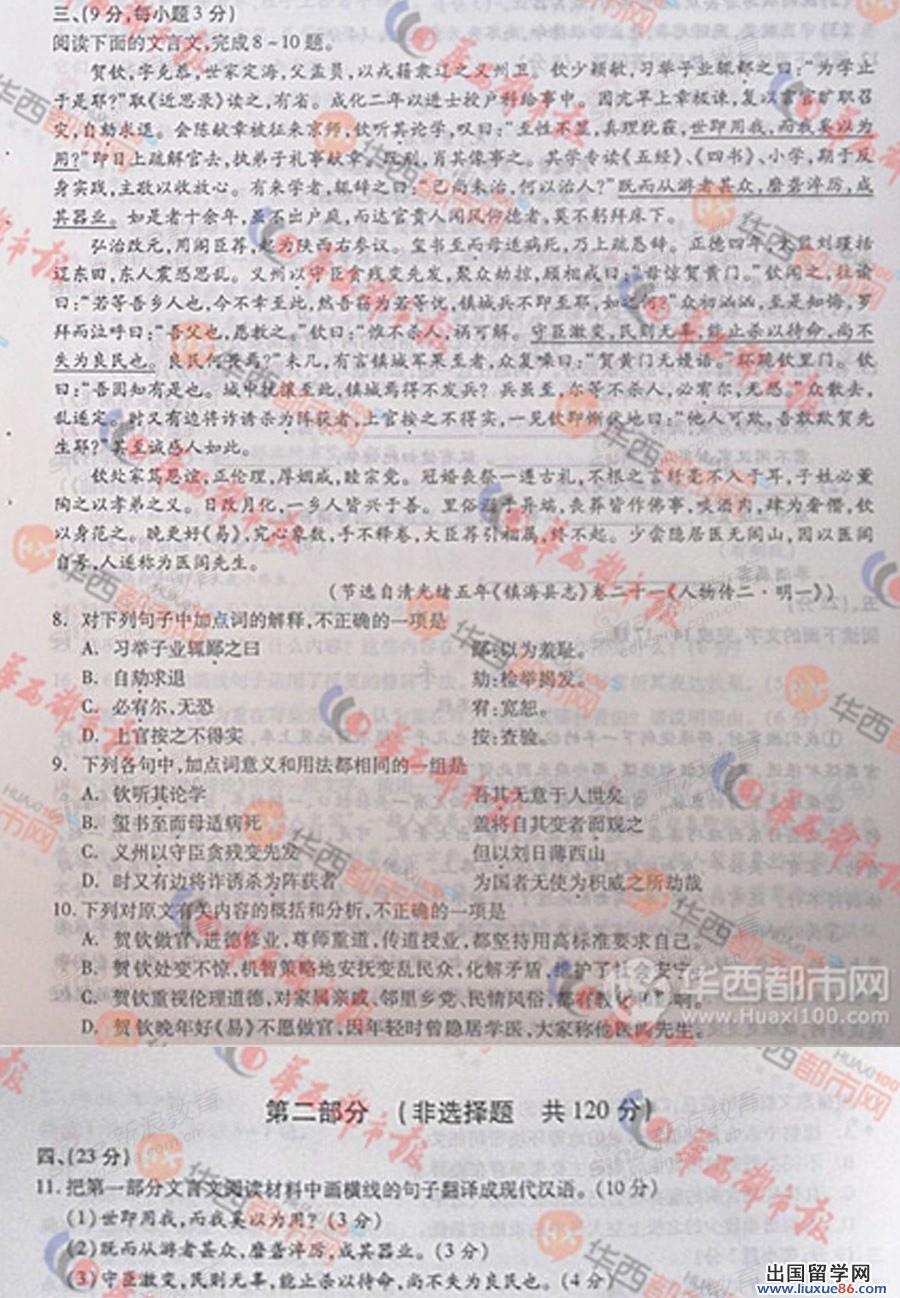 三、(9 分,每小题 3 分)
阅读下面的文言文,完成 8～10 题。
贺钦,字克恭,世家定海,父孟员,以戎籍隶辽之义州卫。钦少颖敏,习举子业辄鄙之曰:“为学止
于是耶?”取《近思录》读之,有省。成化二年以进士授户科给事中。因亢旱上章极谏,复以言官旷职召
灾,自劾求退。会陈献章被征来京师,钦听其论学,叹曰:“至性不显,真理犹霾,世即用我,而我奚以为
用?”即日上疏解官去,执弟子礼事献章。既别,肖其像事之。其学专读《五经》、《四书》、小学,期于反
身实践,主敬以收放心。有来学者,辄辞之曰:“己尚未治,何以治人?”既而从游者甚众,磨砻淬厉,成
其器业。如是者十余年,足不出户庭,而达官贵人闻风仰德者,莫不躬拜床下。
弘治改元,用阁臣荐,起为陕西右参议。玺书至而母适病死,乃上疏恳辞。正德四年,太监刘瑾括
辽东田,东人震恐思乱。义州以守臣贪残变先发,聚众劫掠,顾相戒曰:“毋惊贺黄门。”钦闻之,往谕
曰:“若等吾乡人也,今不幸至此,然吾窃为若等忧,镇城兵不即至耶,如之何?”众初汹汹,至是知悔,罗
拜而泣呼曰:“吾父也,愿教之。”钦曰:“惟不杀人,祸可解。守臣激变,民则无辜,能止杀以待命,尚不
失为良民也。良民何畏焉?”未几,有言镇城军果至者,众复噪曰:“贺黄门无嫚语。”环跪钦里门。钦
曰:“吾固知有是也。城中扰攘至此,镇城焉得不发兵?兵虽至,尔等不杀人,必宥尔,无恐。”众散去,
乱遂定。时又有边将诈诱杀为阵获者,上官按之不得实,一见钦即惭伏地曰:“他人可欺,吾敢欺贺先
生耶?”其至诚感人如此。
钦处家笃恩谊,正伦理,厚姻戚,睦宗党。冠婚丧祭一遵古礼,不根之言纤毫不入于耳,子姓必董
陶之以孝弟之义。日改月化,一乡人皆兴于善。里俗溺于异端,丧葬皆作佛事,啖酒肉,肆为奢僭,钦
以身范之。晚更好《易》,究心象数,手不释卷,大臣荐引相属,终不起。少尝隐居医无闾山,因以医闾
自号,人遂称为医闾先生。
(节选自清光绪五年《镇海县志》卷二十一《人物传二·明一》)
8. 对下列句子中加点词的解释,不正确的一项是
A. 习举子业辄鄙之曰 鄙:以为羞耻。
B. 自劾求退 劾:检举揭发。
C. 必宥尔,无恐 宥:宽恕。
D. 上官按之不得实 按:查验。
9. 下列各句中,加点词意义和用法都相同的一组是
A. 钦听其论学 吾其无意于人世矣
B. 玺书至而母适病死 盖将自其变者而观之
C. 义州以守臣贪残变先发 但以刘日薄西山
D. 时又有边将诈诱杀为阵获者 为国者无使为积威之所劫哉
10. 下列对原文有关内容的概括和分析,不正确的一项是
A. 贺钦做官,进德修业,尊师重道,传道授业,都坚持用高标准要求自己。
B. 贺钦处变不惊,机智策略地安抚变乱民众,化解矛盾,维护了社会安宁。
C. 贺钦重视伦理道德,对家属亲戚、邻里乡党、民情风俗,都有教化和影响。
D. 贺钦晚年好《易》不愿做官,因年轻时曾隐居学医,大家称他医闾先生。
华西都市网
www.Huaxi100.com
第二部分 (非选择题 共 120 分)
四、(23 分)
11. 把第一部分文言文阅读材料中画横线的句子翻译成现代汉语。(10 分)
(1)世即用我,而我奚以为用?(3 分)
(2)既而从游者甚众,磨砻淬厉,成其器业。(3 分)
(3)守臣激变,民则无辜,能止杀以待命,尚不失为良民也。(4 分)
出国留学网
www.liuxue86.com